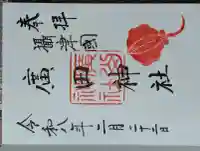 奉拝
攝津國
廣田神社
令和八年二月二十二日